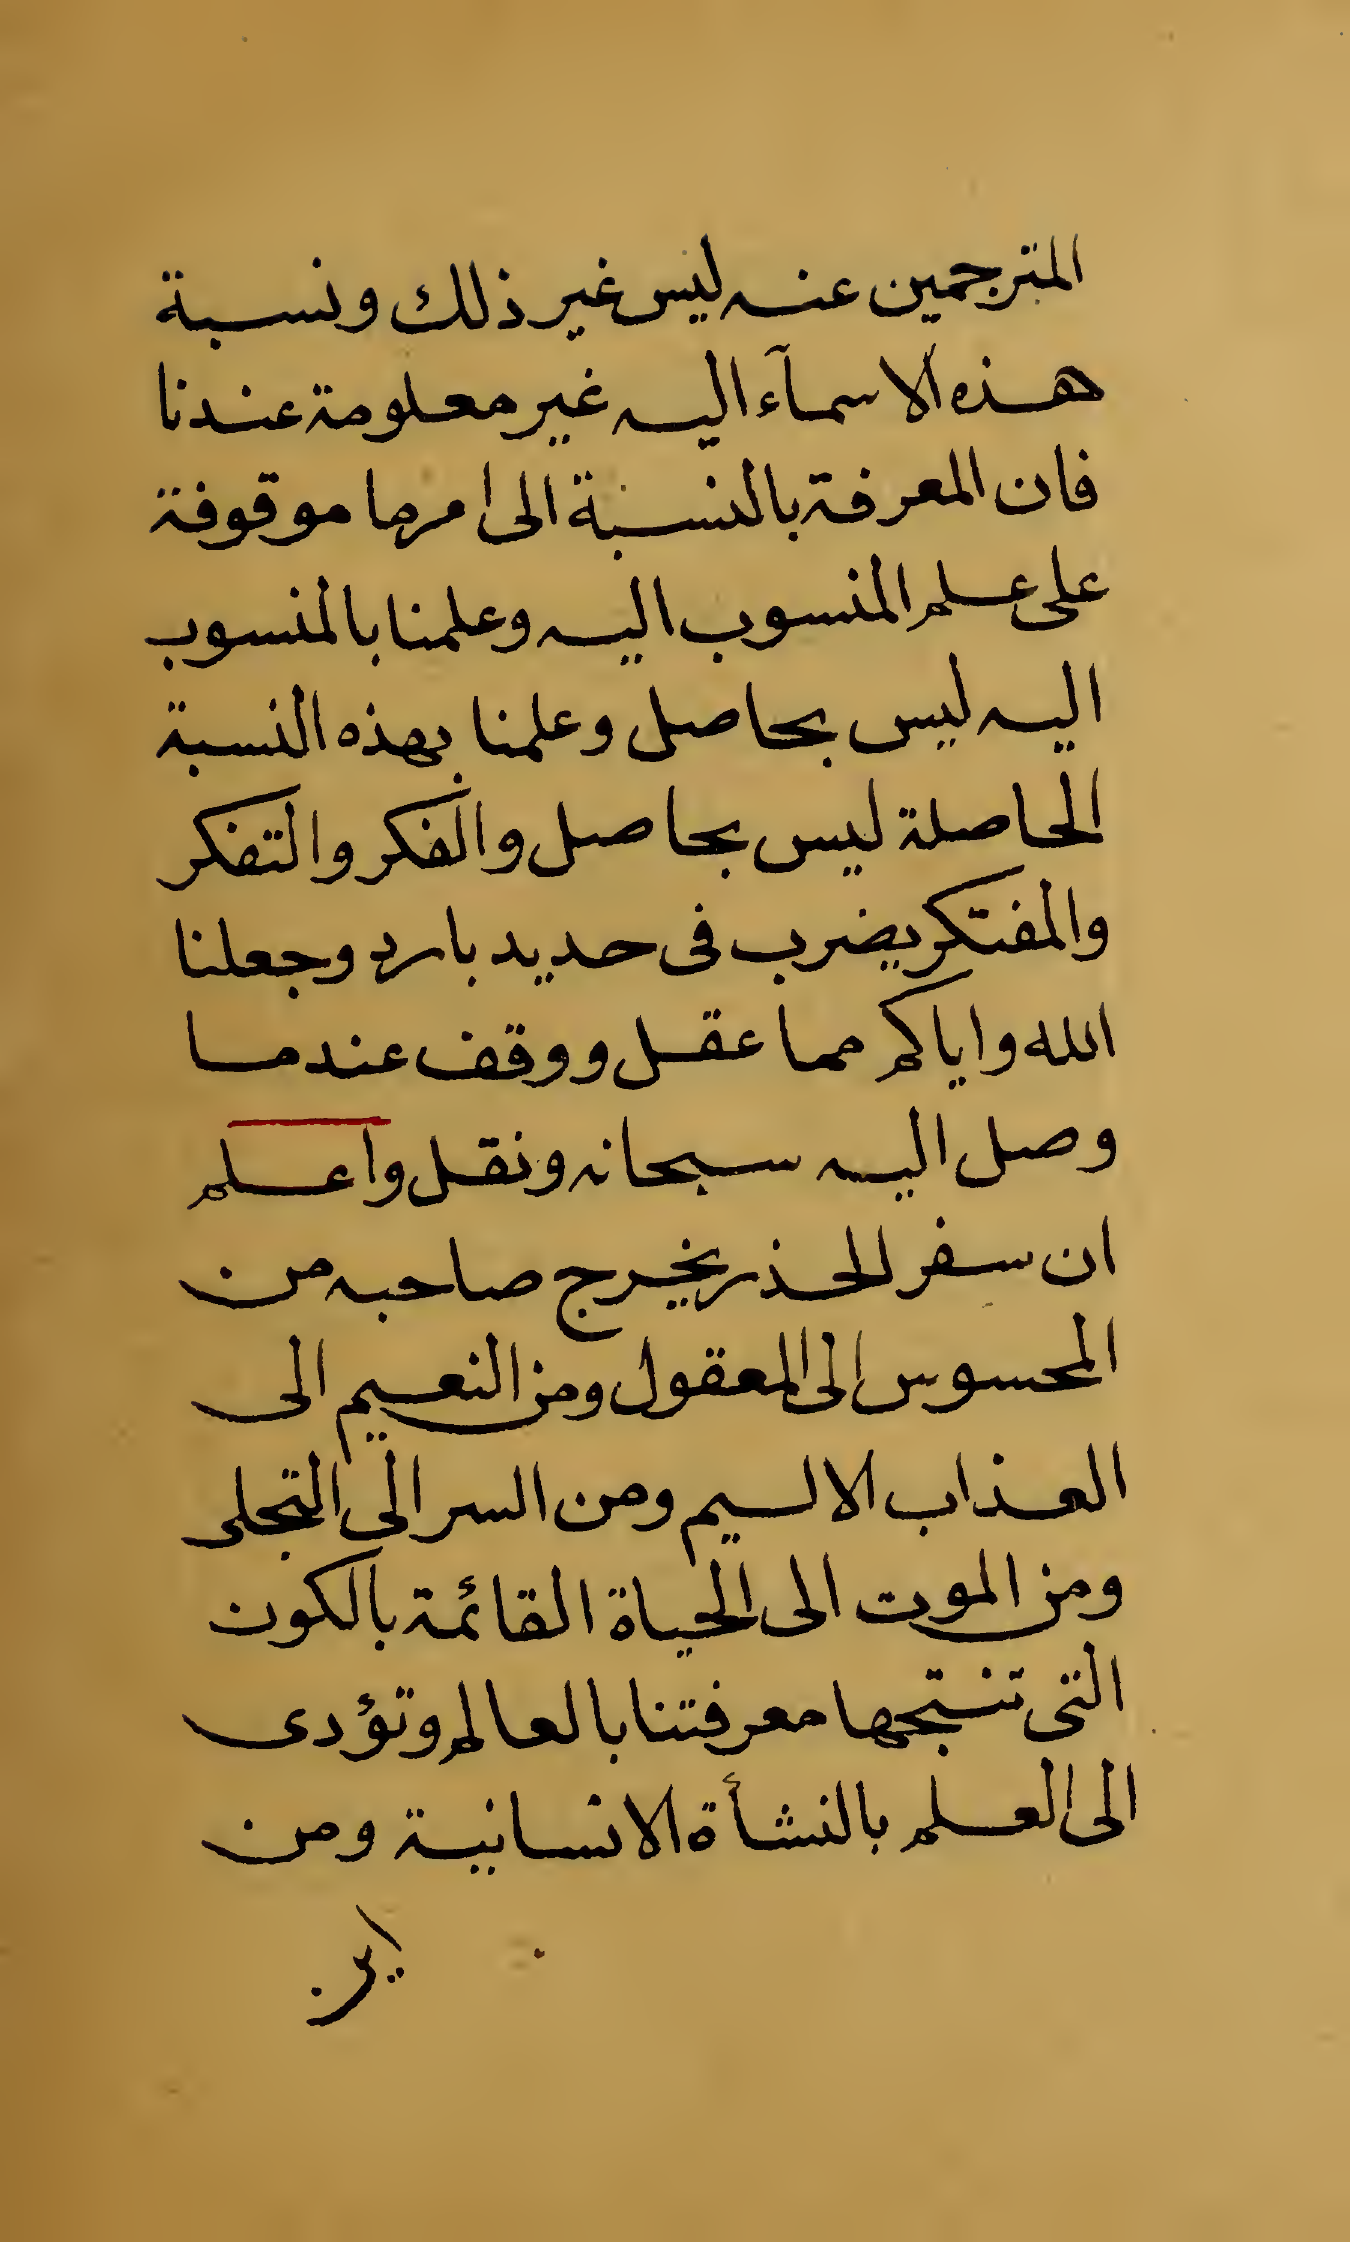 المترجمين عنه ليس غير ذلك ونسبة
هذه الاسمآء اليه غير معلومة عندنا
فان المعرفة بالنسبة الى امر ما موقوفة
على علم المنسوب اليه وعلمنا بالمنسوب
اليه ليس بحاصل وعلمنا بهذه النسبة
الحاصلة ليس بحاصل والفكر والتفكر
والمفتكر يضرب فى حديد بارد وجعلنا
الله واياكم مما عقل ووقف عند ما
وصل اليه سبحانه ونقل واعلم
ان سفر الحذر يخرج صاحبه من
المحسوس الى المعقول ومن النعيم الى
العذاب الاليم ومن السر الى التجلى
ومن الموت الى الحياة القائمة بالكون
التى تنتجها معرفتنا بالعالم وتؤدى
الى العلم بالنشأة الانسانية ومن